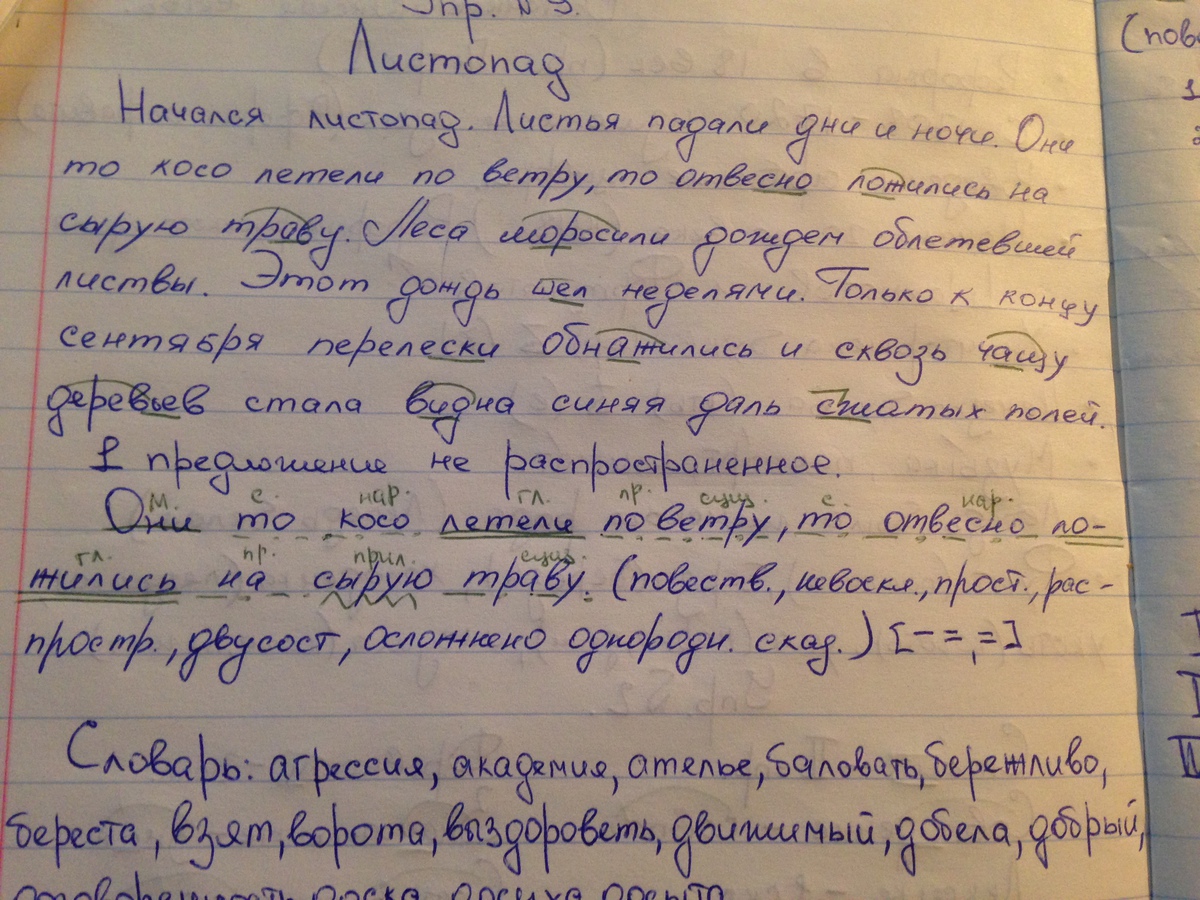 Упр. № 9.
Листопад
Начался листопад. Листья падали дни и ночи. Они
то косо летели по ветру, то отвесно ложились на
сырую траву. Леса моросили дождем облетевшей
листвы. Этот дождь шел неделями. Только к концу
сентября перелески обнажились и сквозь чащу
деревьев стала видна синяя даль сжатых полей.
1 предложение не распространенное.
м. с. нар. гл. пр. сущ. с. нар.
Они то косо летели по ветру, то отвесно ло-
гл. пр. прил. сущ.
жились на сырую траву. (повеств., невоскл., прост., рас-
простр., двусост, осложнено однородн. сказ.) [- =, =]
Словарь: агрессия, академия, ателье, баловать, бережливо,
береста, взят, ворота, выздороветь, движимый, добела, добрый,
(пов
1
I
I
II